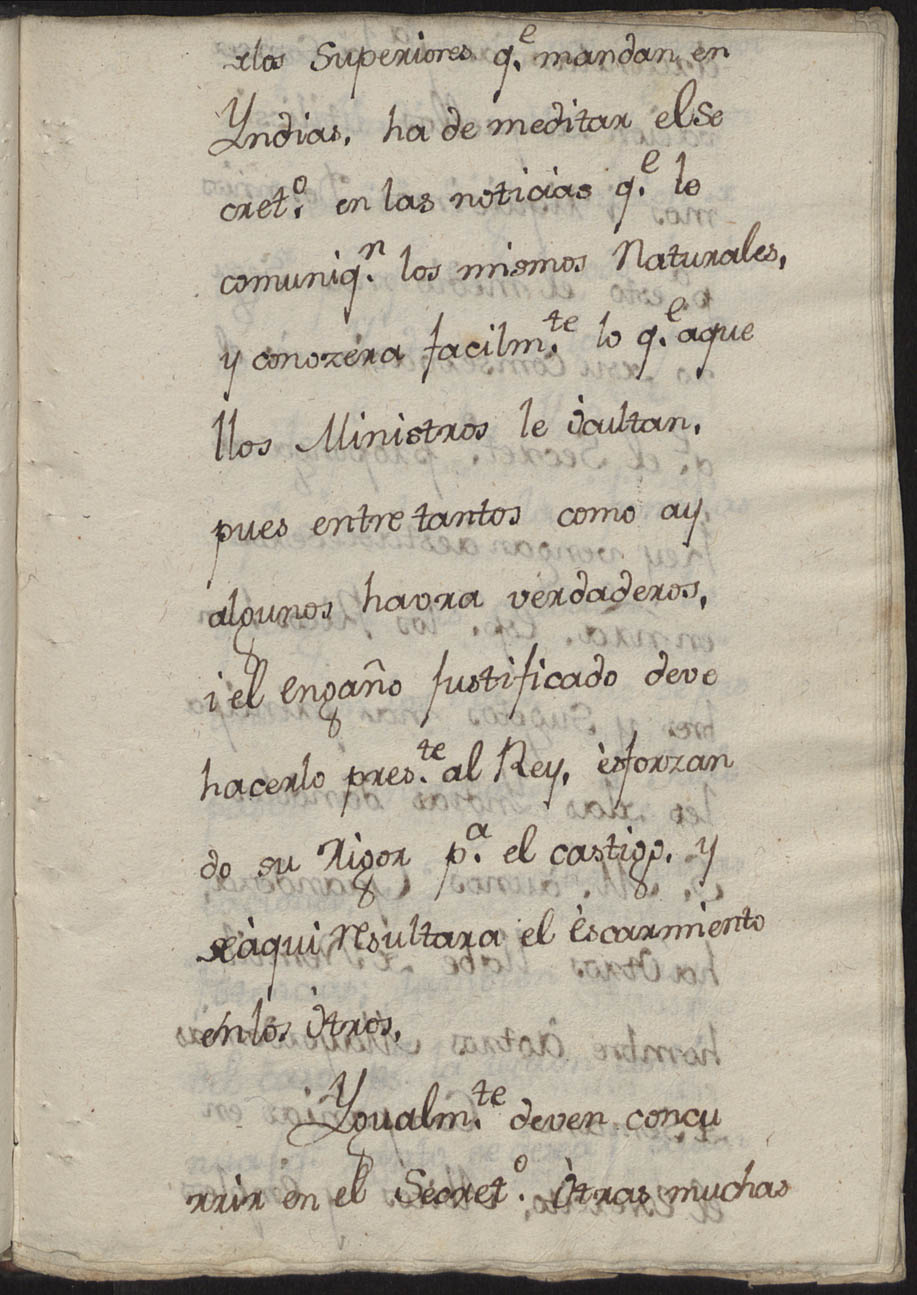 dlos Superiores q.e mandan en
Yndias, ha de meditar el Se
cret.o en las noticias q.e le
comuniq.n los mismos Naturales,
y conozera facilm.te lo q.e aque
llos Ministros le òcultan,
pues entre tantos como ay,
algunos havra verdaderos,
i el engaño justificado deve
hacerlo pres.te al Rey, èsforzan
do su rigor p.a el castigo, y
deàqui resultara el èscarmiento
en los òtros.
Ygualm.te deven concu
rrir en el Secret.o òtras muchas